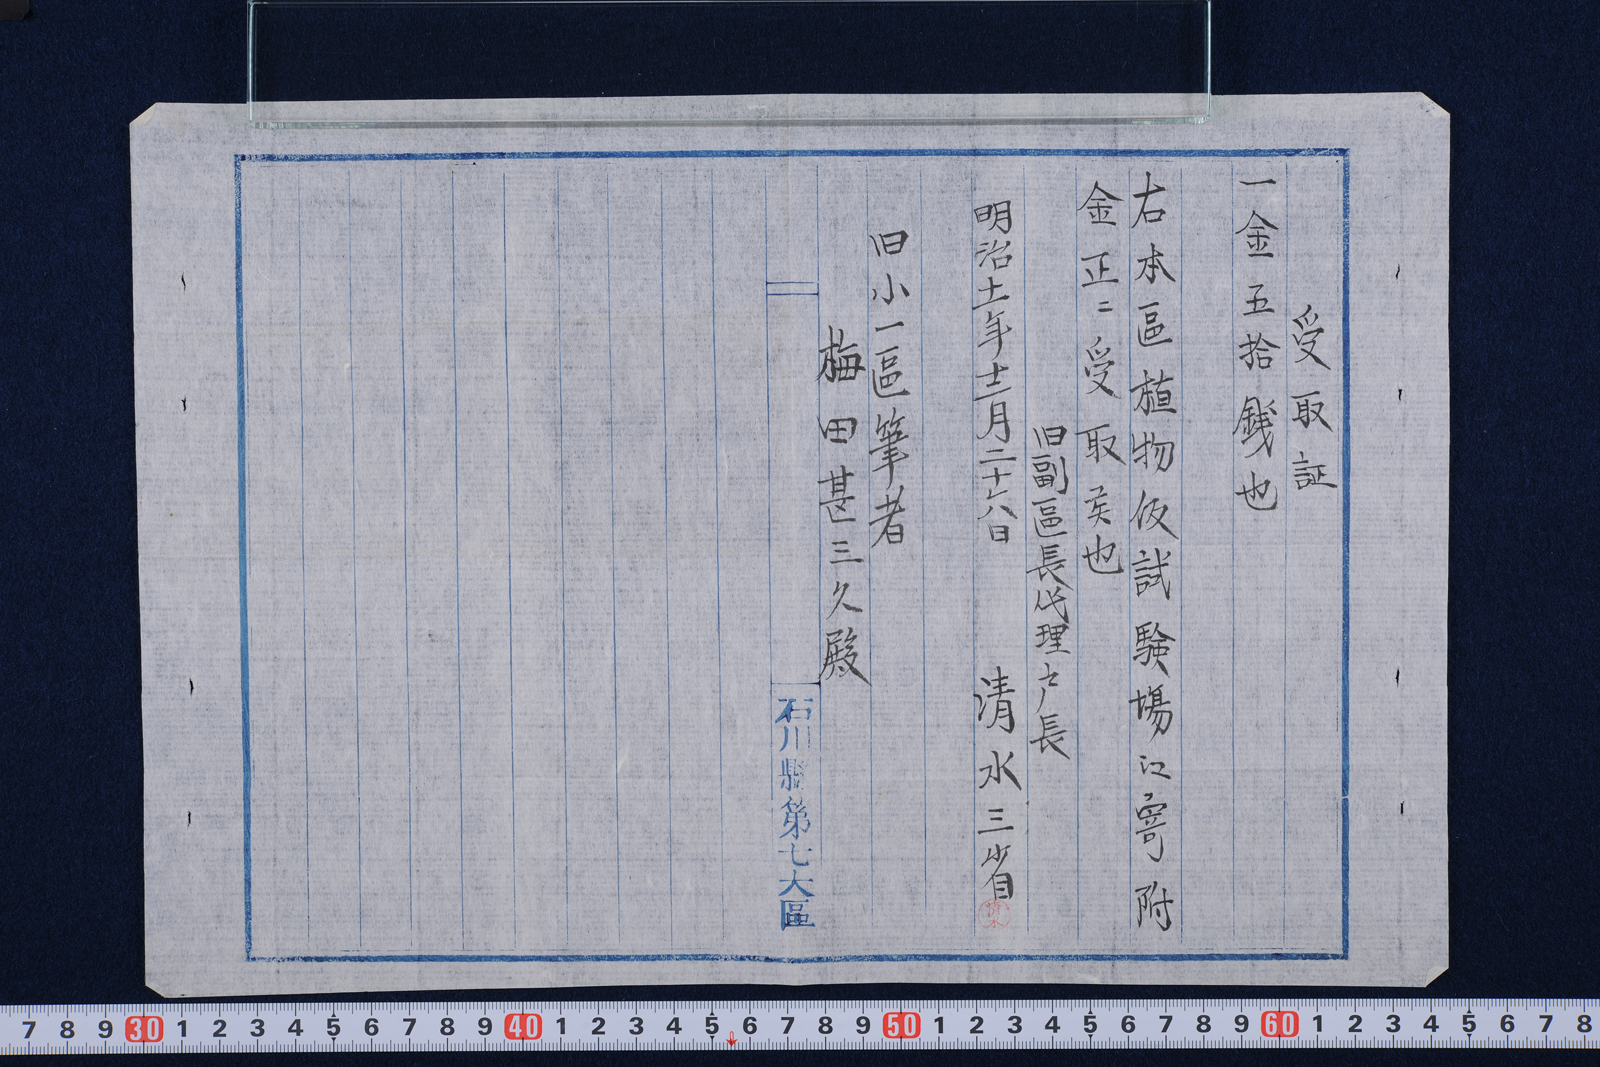 受取証
一金五拾銭也
右本區植物仮試験場江寄附
金正ニ受取候也
旧副區長代理戸長
明治十一年十二月二十八日
清水三省
清水
旧小一區筆者
梅田甚三久殿
石川縣第七大區
7 8 9 30 1 2 3 4 5 6 7 8 9 40 1 2 3 4 5 6 7 8 9 50 1 2 3 4 5 6 7 8 9 60 1 2 3 4 5 6 7 8